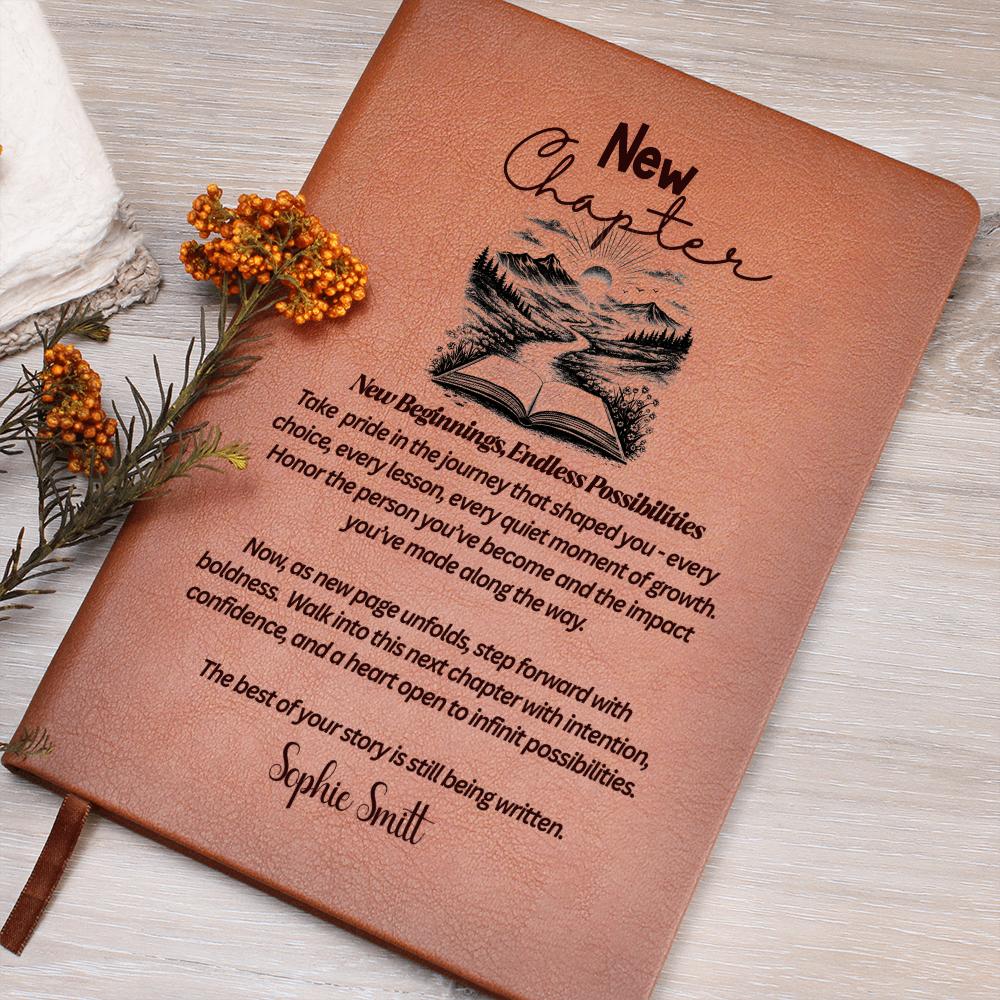 New
Chapter
New Beginnings, Endless Possibilities
Take pride in the journey that shaped you - every
choice, every lesson, every quiet moment of growth.
Honor the person you've become and the impact
you've made along the way.
Now, as new page unfolds, step forward with
boldness. Walk into this next chapter with intention,
confidence, and a heart open to infinit possibilities.
The best of your story is still being written.
Sophie Smitt